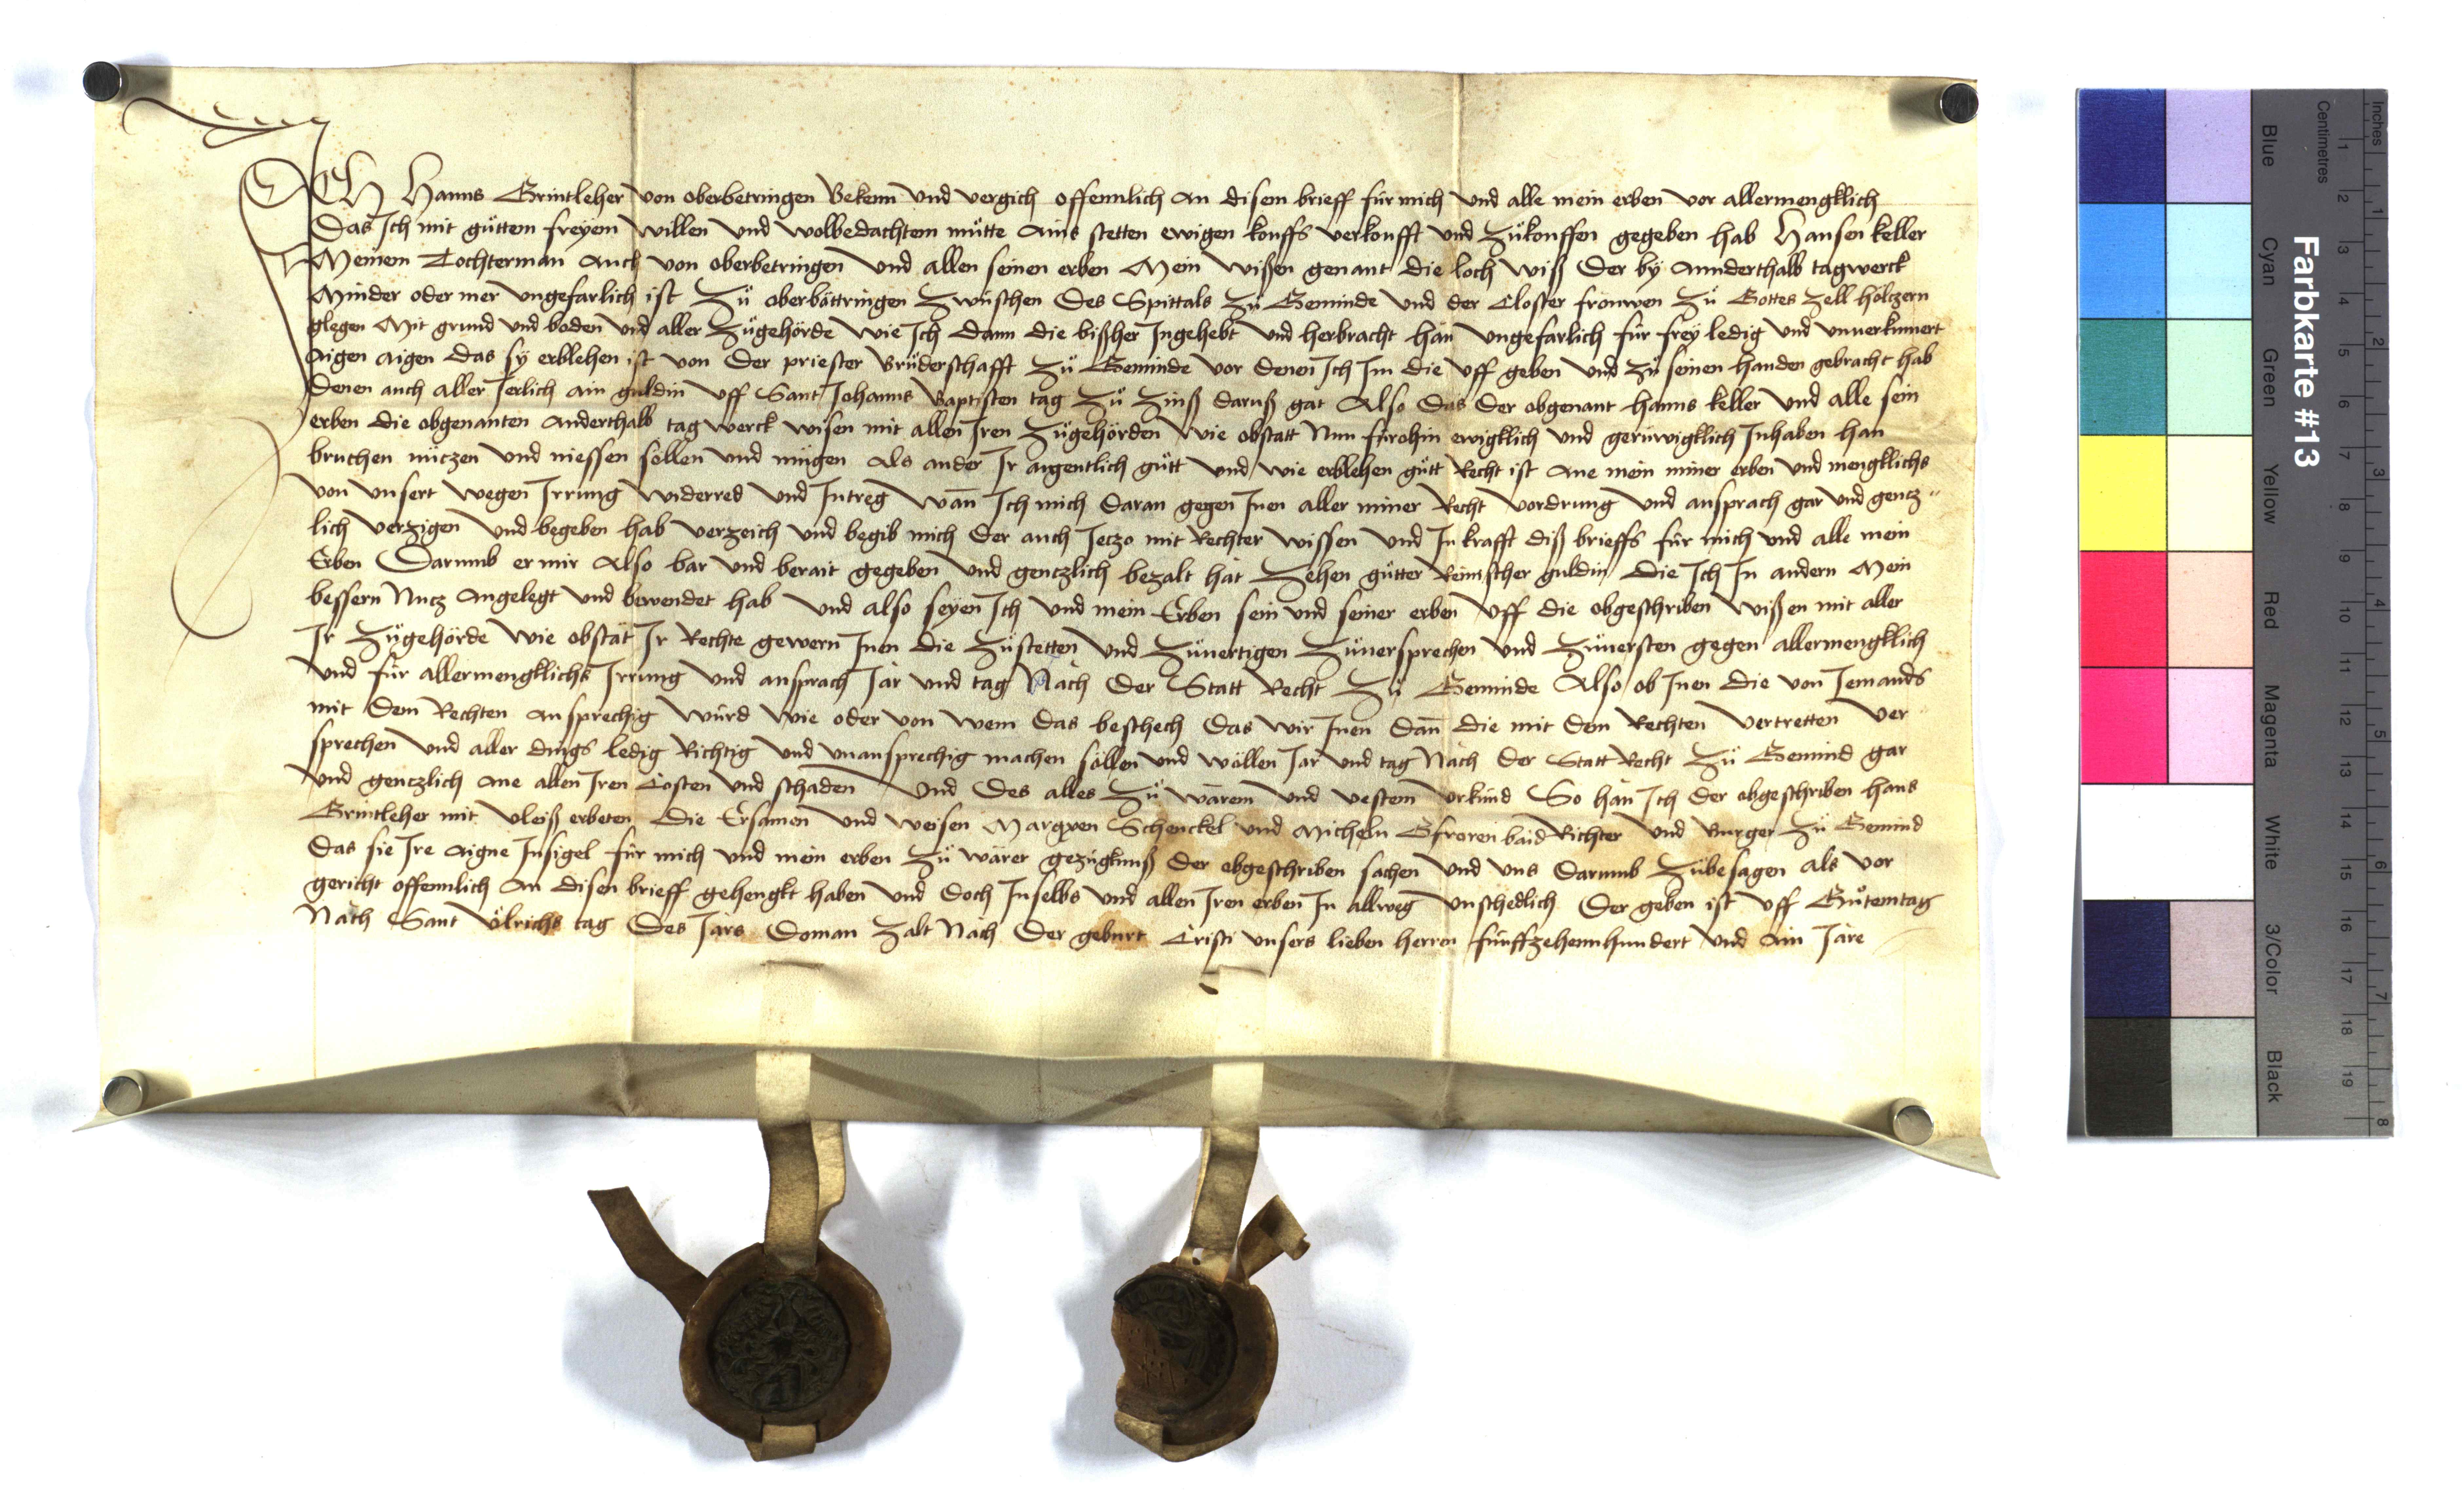 ICH Hanns Grintleher von oberbetringen Bekenn und vergich offennlich an disem brieff für mich und alle mein erben vor allermengklich
Das Ich mit güttem freyem willen und wolbedachtem mütte ains stetten ewigen kouffs verkoufft und zükouffen gegeben hab Hansen keller
Meinem Tochterman Auch von oberbetringen und allen seinen erben Mein wißen genant die loch wiß Der by Annderthalb tagwerck
Minder oder mer ungefarlich ist Zü oberböttringen Zwüschen Des Spittals Zü Geminde und der Closter frouwen Zü Gottes Zell höltzern
glegen Mit grund und boden und aller Zügehörde wie Ich dann die bißher Ingehebt und herbracht hän ungefarlich für frey ledig und unverkumert
aigen aigen das sy erblehen ist von Der priester Brüderschafft Zü Geminde vor denen Ich Im die uff geben und Zü seinen handen gebracht hab
Denen auch aller Jerlich ain guldin uff Sant Johanns Baptisten tag Zü Zinß daruß gat Also das Der obgenant hanns keller und alle sein
erben die obgenanten Anderthalb tag werck wisen mit allen Iren Zügehörden wie obstatt Nun fürohin ewigklich und gerüwigklich Inhaben han
bruchen nüczen und niessen söllen und mügen als ander Ir aigentlich gütt und wie erblehen gütt Recht ist Ane mein miner erben und mengklichs
von unsert wegen Irrung widerred und Intreg wan̄ Ich mich daran gegen Inen aller miner Recht vordrung und ansprach gar und gencz"
lich verzigen und begeben hab verzeich und begib mich der auch Jeczo mit Rechter wissen und In krafft diß brieffs für mich und alle mein
Erben Darumb er mir Also bar und berait gegeben und genczlich bezalt hät Zehen gütter Reinischer guldin Die Ich In andern Mein
bessern Nucz Angelegt und bewendet hab und also seyen Ich und mein Erben sein und seiner erben uff die obgeschriben wißen mit aller
Ir Zügehörde wie obstät Ir Rechte gewern Inen die Züstetten und Züvertigen Züversprechen und Züversten gegen allermengklich
und für allermengklichs Irrung und ansprach Jär und tag Näch Der Statt Recht Zü Geminde Also ob Inen die von Jemands
mit dem Rechten Ansprechig würd wie oder von wem das beschech das wir Inen dan̄ die mit dem Rechten vertretten ver
sprechen und aller dings ledig Richtig und unansprechig machen söllen und wöllen Jär und tag Näch der Statt Recht Zü Gemind gar
und genczlich Ane allen Iren Costen und schaden Und Des alles Zü wärem und vestem urkünd So hän Ich der obgeschriben hans
Grintleher mit vleiß erbeten die Ersamen und weisen Marqxen Schenckel und Micheln Gfroren baid Richter und Burger Zü Gemind
das sie Ire Aigne Insigel für mich und mein erben Zü wärer gezügknuß der obgeschriben sachen und uns darumb Zübesagen als vor
gericht offennlich An disen brieff gehengkt haben und doch Inselbs und allen Iren erben In allweg unschedlich Der geben ist uff Gütemtag
Näch Sant Ülrichs tag Des Järs Doman Zalt Näch Der geburt Cristi unsers lieben herren fünffzehennhundert und Ain Järe
Farbkarte #13
Centimetres
Inches
Blue
Cyan
Green
Yellow
Red
Magenta
White
3/Color
Black
1 2 3 4 5 6 7 8 9 10 11 12 13 14 15 16 17 18 19
1 2 3 4 5 6 7 8